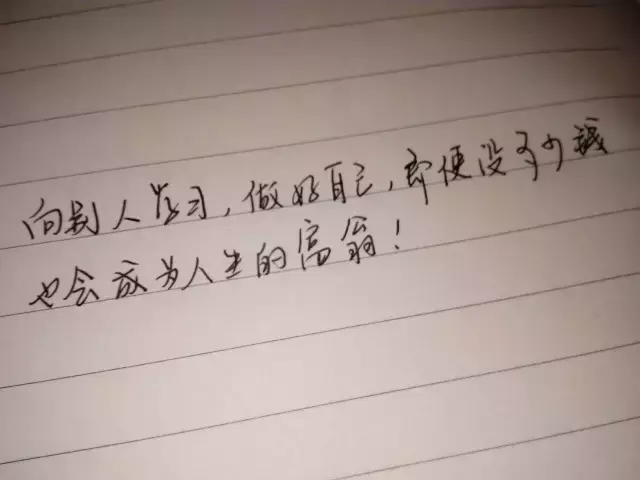 向别人学习,做好自己,即便没多少钱
也会成为人生的富翁!